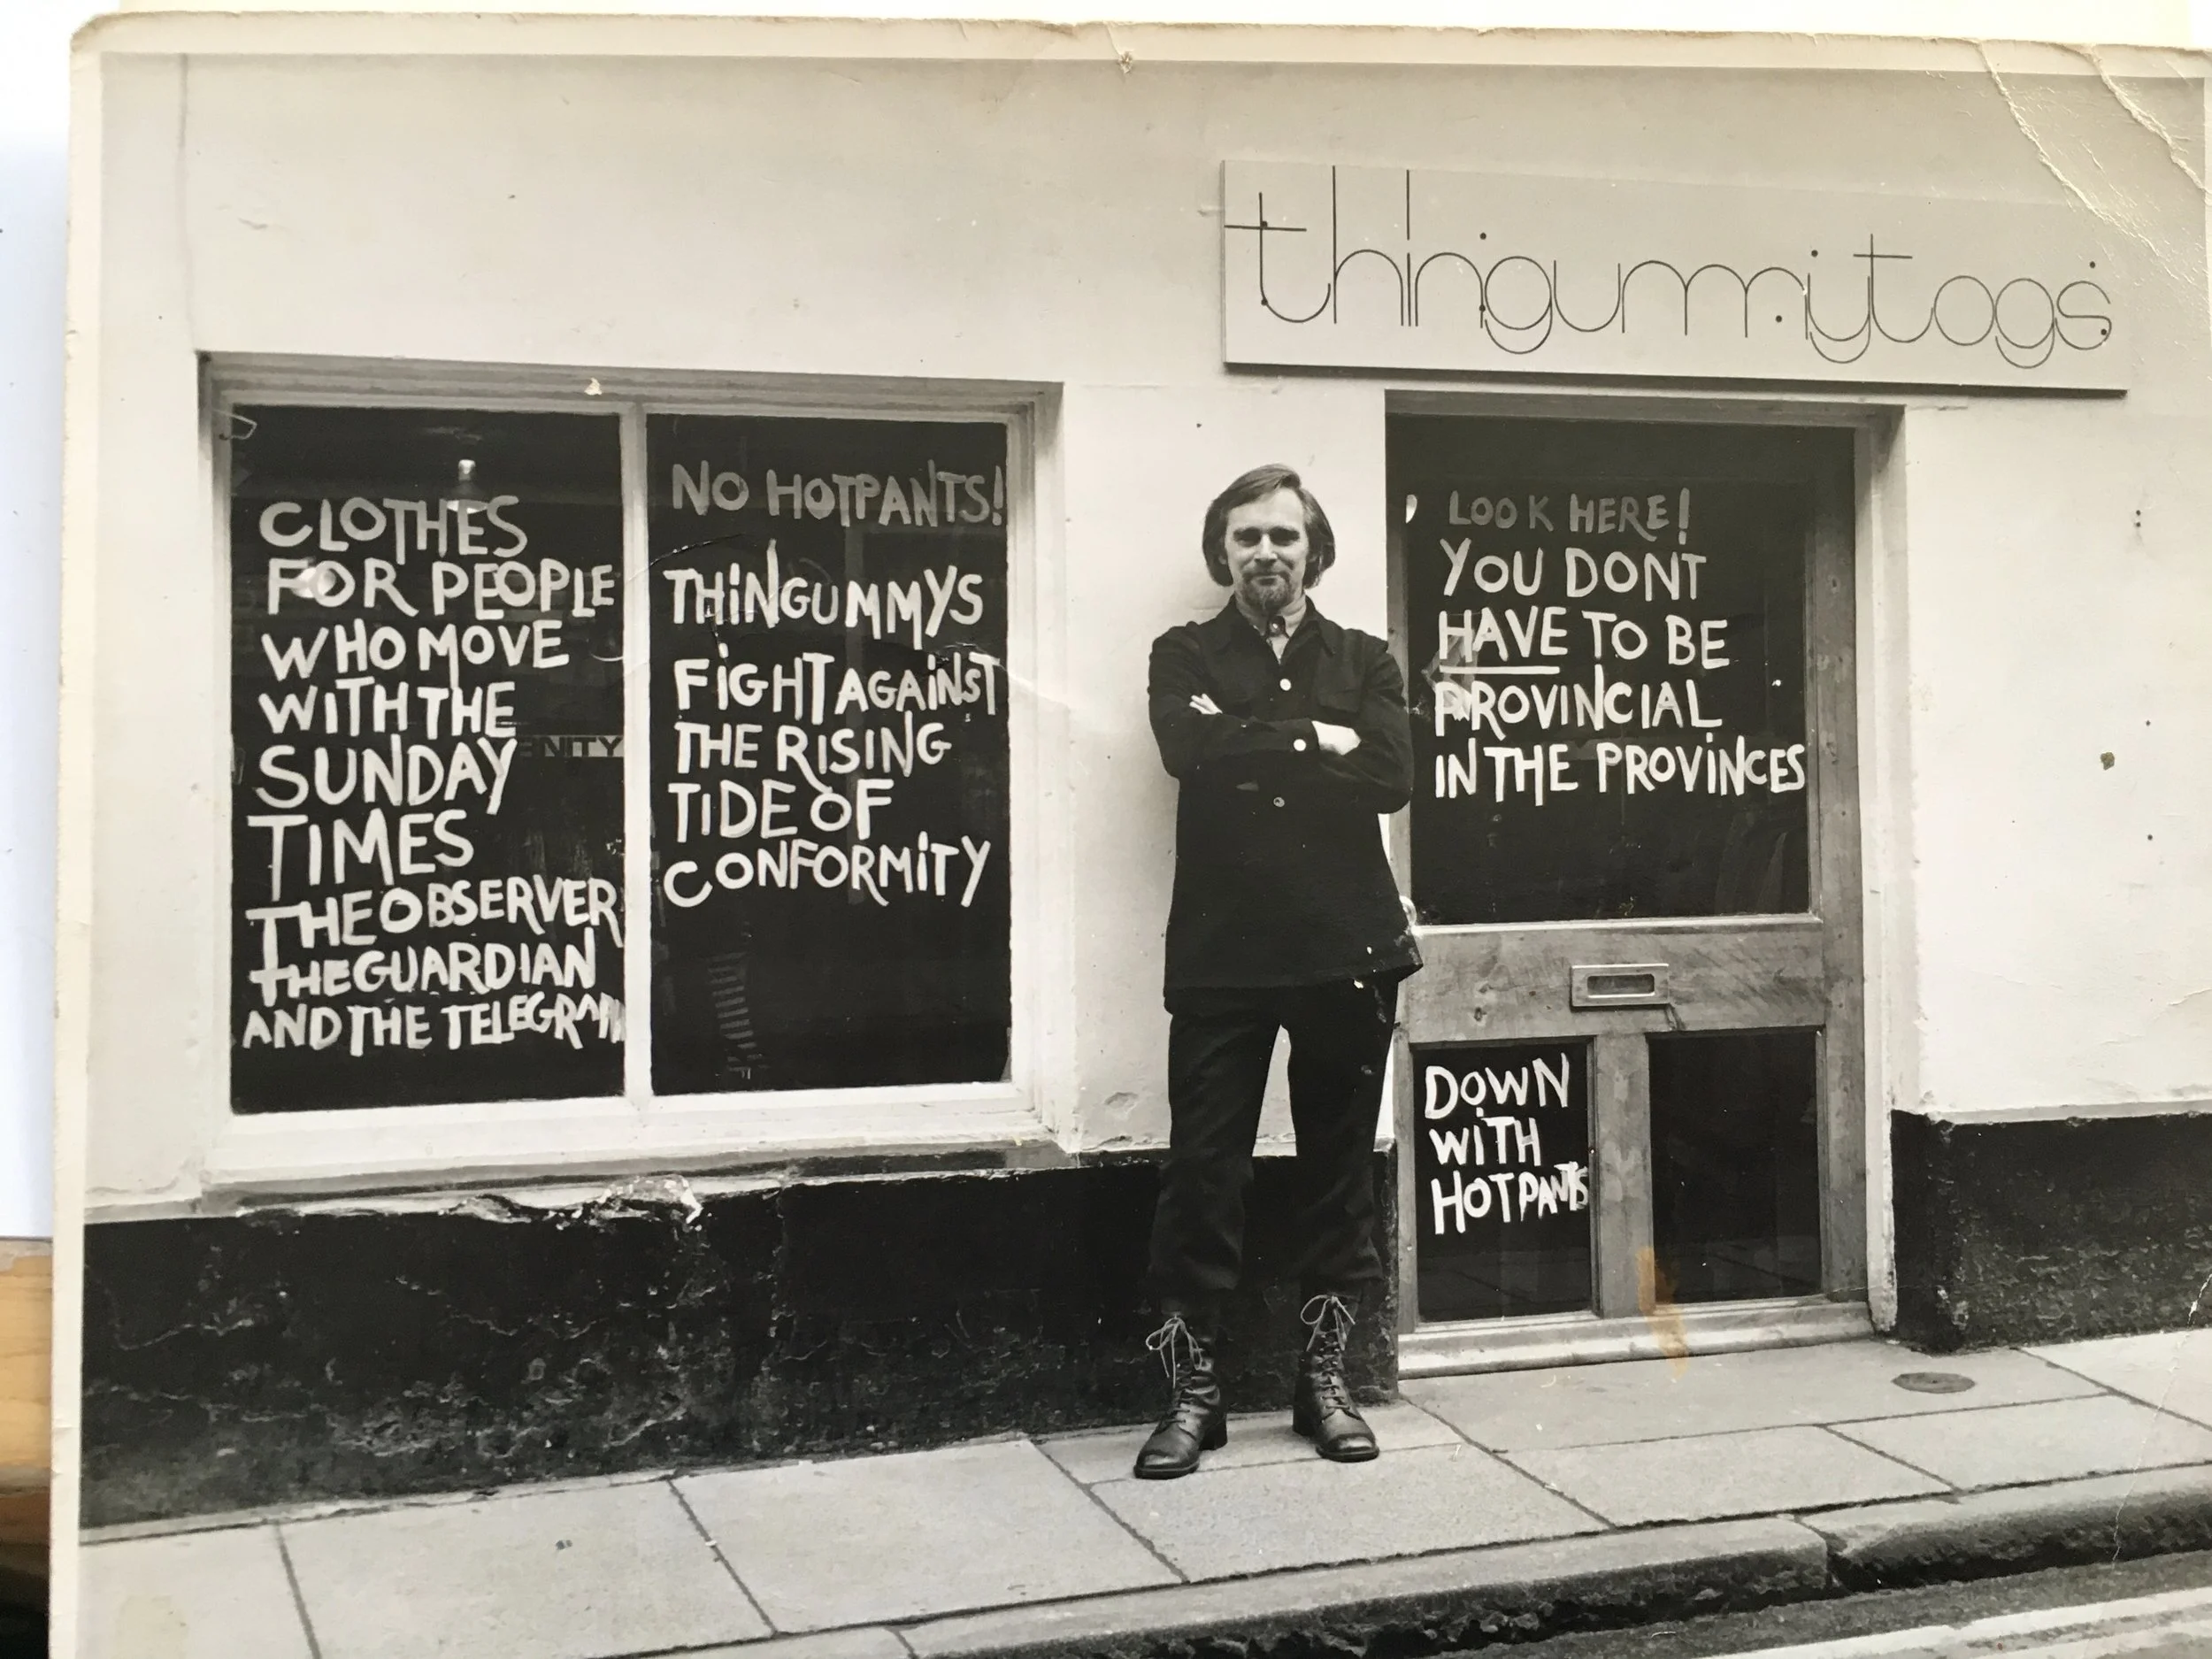 thingummytogs
CLOTHES
FOR PEOPLE
WHO MOVE
WITH THE
SUNDAY
TIMES
THE OBSERVER
THE GUARDIAN
AND THE TELEGRAPH
NO HOTPANTS!
THINGUMMYS
FIGHT AGAINST
THE RISING
TIDE OF
CONFORMITY
LOOK HERE!
YOU DONT
HAVE TO BE
PROVINCIAL
IN THE PROVINCES
DOWN
WITH
HOTPANTS